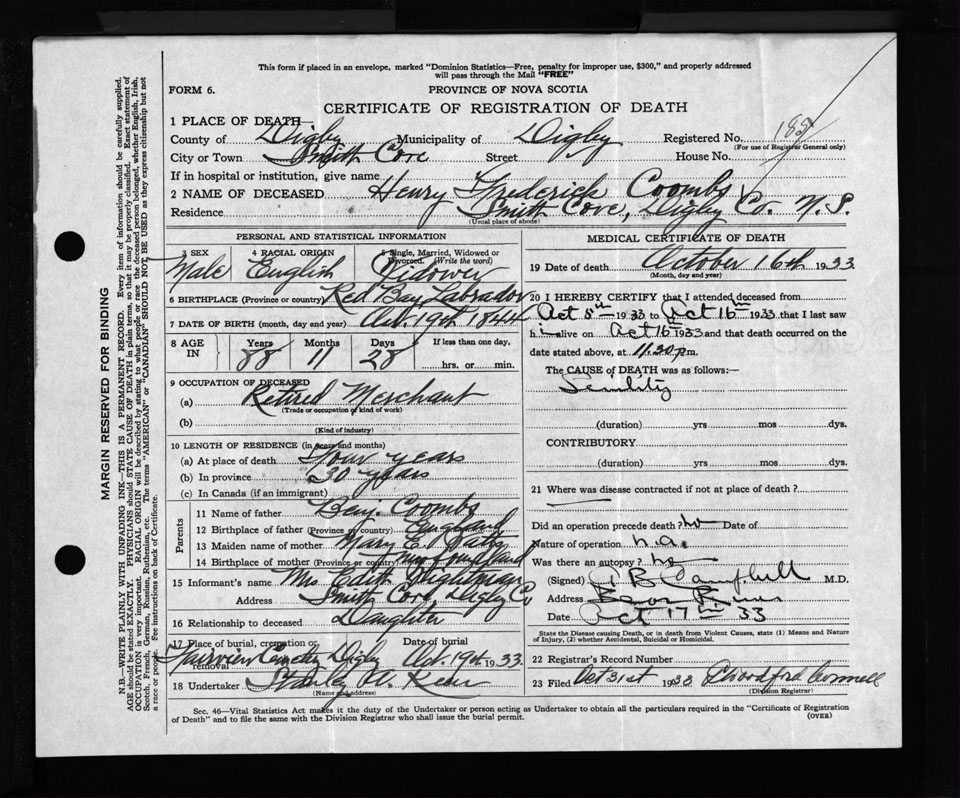 This form if placed in an envelope, marked "Dominion Statistics—Free, penalty for improper use, $300," and properly addressed
will pass through the Mail "FREE"
FORM 6.
PROVINCE OF NOVA SCOTIA
CERTIFICATE OF REGISTRATION OF DEATH
1 PLACE OF DEATH—
County of Digby Municipality of Digby Registered No.
(For use of Registrar General only)
City or Town Smith Cove Street House No.
If in hospital or institution, give name
2 NAME OF DECEASED Henry Frederick Coombs
Residence Smith Cove, Digby Co. N.S.
(Usual place of abode)
PERSONAL AND STATISTICAL INFORMATION
3 SEX 4 RACIAL ORIGIN 5 Single, Married, Widowed or Divorced. (Write the word)
Male English Widower
6 BIRTHPLACE (Province or country) Red Bay Labrador
7 DATE OF BIRTH (month, day and year) Oct. 19th 1844
8 AGE IN Years Months Days If less than one day.
88 11 28 hrs. or min.
9 OCCUPATION OF DECEASED
(a) Retired Merchant
(Trade or occupation or kind of work)
(b)
(Kind of industry)
10 LENGTH OF RESIDENCE (in years and months)
(a) At place of death Four years
(b) In province 30 years
(c) In Canada (if an immigrant)
Parents
11 Name of father Benj. Coombs
12 Birthplace of father (Province or country) England
13 Maiden name of mother Mary E.
14 Birthplace of mother (Province or country) Newfoundland
15 Informant's name Mrs Edith Wightman
Address Smith Cove, Digby Co
16 Relationship to deceased Daughter
17 Place of burial, cremation or removal Date of burial
Fairview Cemetery Digby Oct. 19th 1933.
18 Undertaker Stanley W.
(Name and address)
MEDICAL CERTIFICATE OF DEATH
19 Date of death October 16th 1933
(Month, day and year)
20 I HEREBY CERTIFY that I attended deceased from
Oct 5th 1933 to Oct 16th 1933, that I last saw
h i alive on Oct 16 1933 and that death occurred on
date stated above, at 11.30 p.m.
The CAUSE of DEATH was as follows:—
Senility
(duration) yrs mos dys.
CONTRIBUTORY
(duration) yrs mos dys.
21 Where was disease contracted if not at place of death?
Did an operation precede death? no Date of
Nature of operation n.a.
Was there an autopsy? no
(Signed) Campbell M.D.
Address Bear River
Date Oct 17th 33
State the Disease causing Death, or in death from Violent Causes, state (1) Means and Nature
of Injury, (2) whether Accidental, Suicidal or Homicidal.
22 Registrar's Record Number
23 Filed Oct 31st 1933
(Division Registrar)
Sec. 46—Vital Statistics Act makes it the duty of the Undertaker or person acting as Undertaker to obtain all the particulars required in the "Certificate of Registration
of Death" and to file the same with the Division Registrar who shall issue the burial permit.
(OVER)
MARGIN RESERVED FOR BINDING
N.B.—WRITE PLAINLY WITH UNFADING INK—THIS IS A PERMANENT RECORD. Every item of information should be carefully supplied.
AGE should be stated EXACTLY. PHYSICIANS should STATE CAUSE OF DEATH in plain terms, so that it may be properly classified. Exact statement of
OCCUPATION is very important. RACIAL ORIGIN will be described by stating to what people or race the deceased person belonged, whether English, Irish,
Scotch, French, German, Russian, Ruthenian, etc. The terms "AMERICAN" or "CANADIAN" SHOULD NOT BE USED as they express citizenship but not
a race or people. See instructions on back of Certificate.